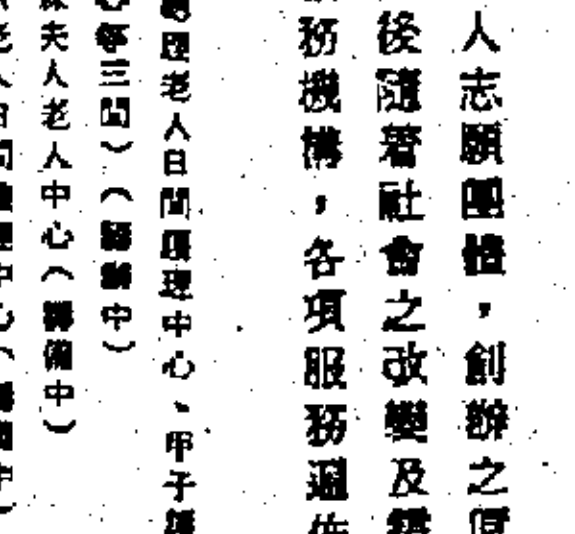 人志願團體，創辦之
後隨著社會之改變及
務機構，各項服務遍佈
老人日間護理中心、甲子
等三間）（籌辦中）
夫人老人中心（籌備中）
老人日間護理中心（籌備中）